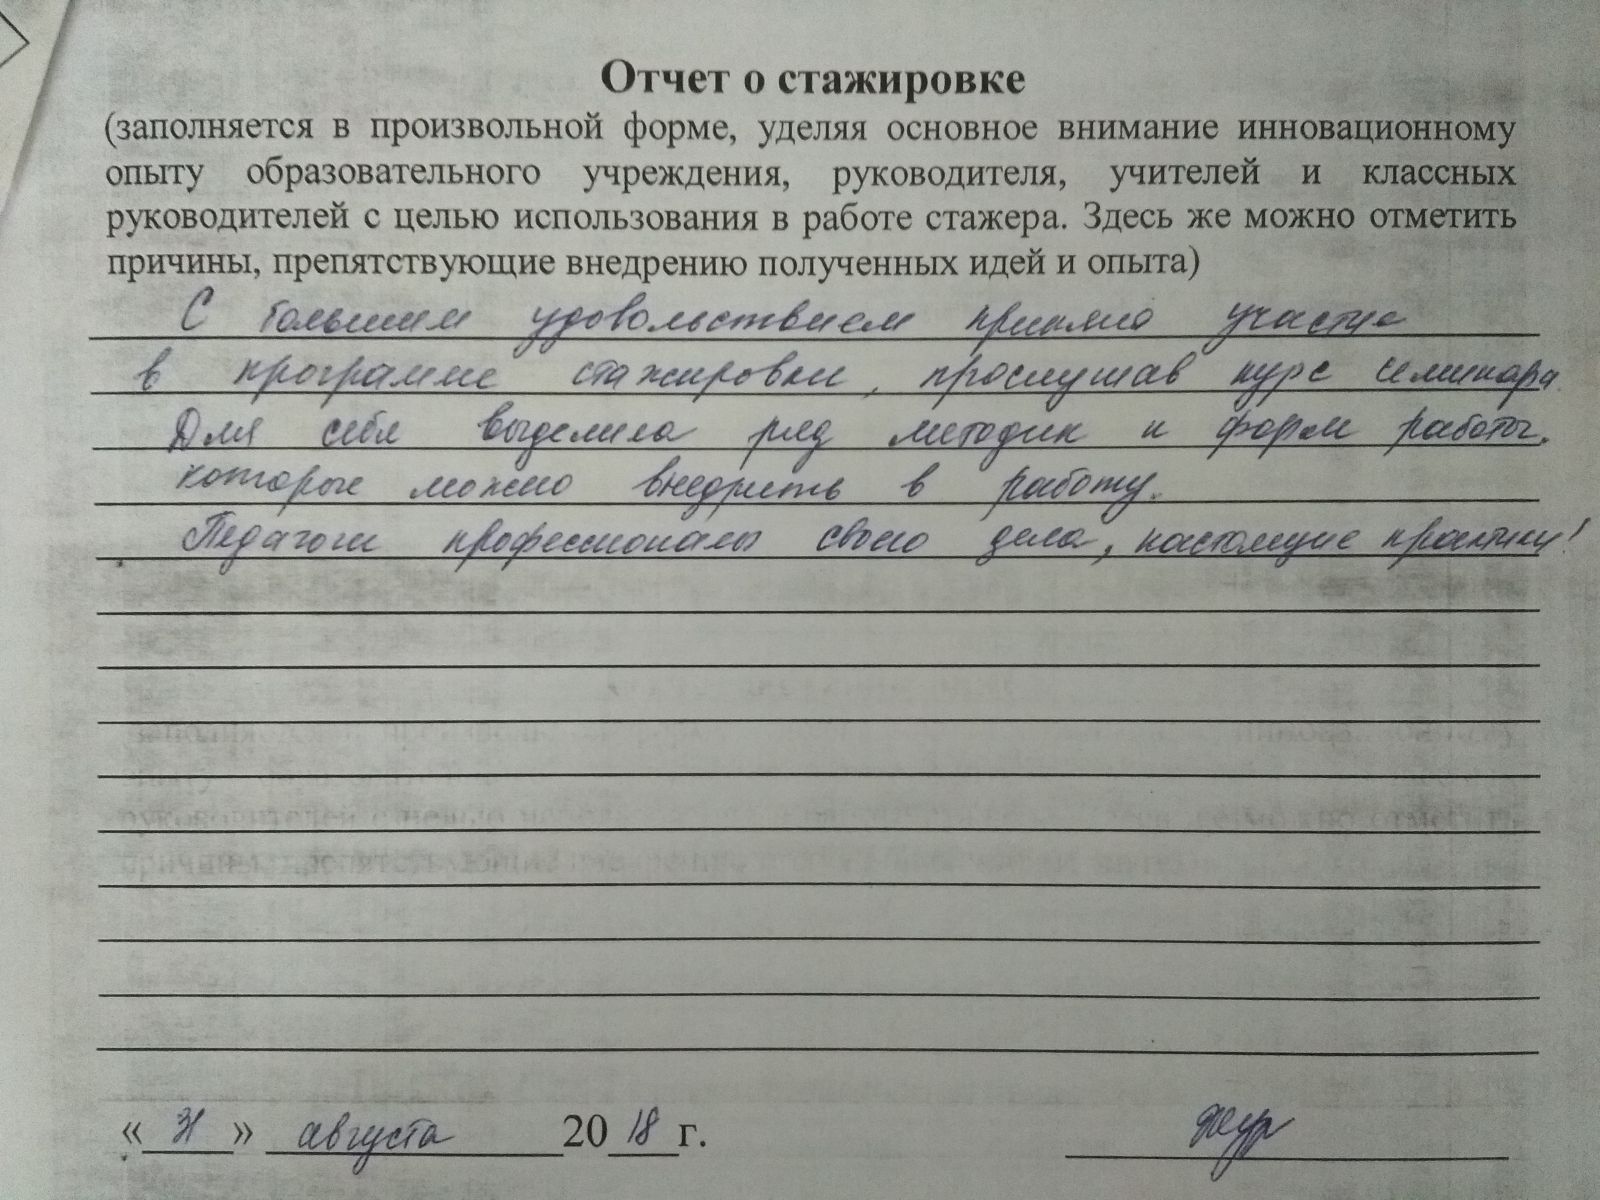 Отчет о стажировке
(заполняется в произвольной форме, уделяя основное внимание инновационному
опыту образовательного учреждения, руководителя, учителей и классных
руководителей с целью использования в работе стажера. Здесь же можно отметить
причины, препятствующие внедрению полученных идей и опыта)
С большим удовольствием приняла участие
в программе стажировки, прослушав курс семинара.
Для себя выделила ряд методик и форм работы,
которые можно внедрить в работу.
Педагоги профессионалы своего дела, настоящие практики!
«31» августа 2018 г.